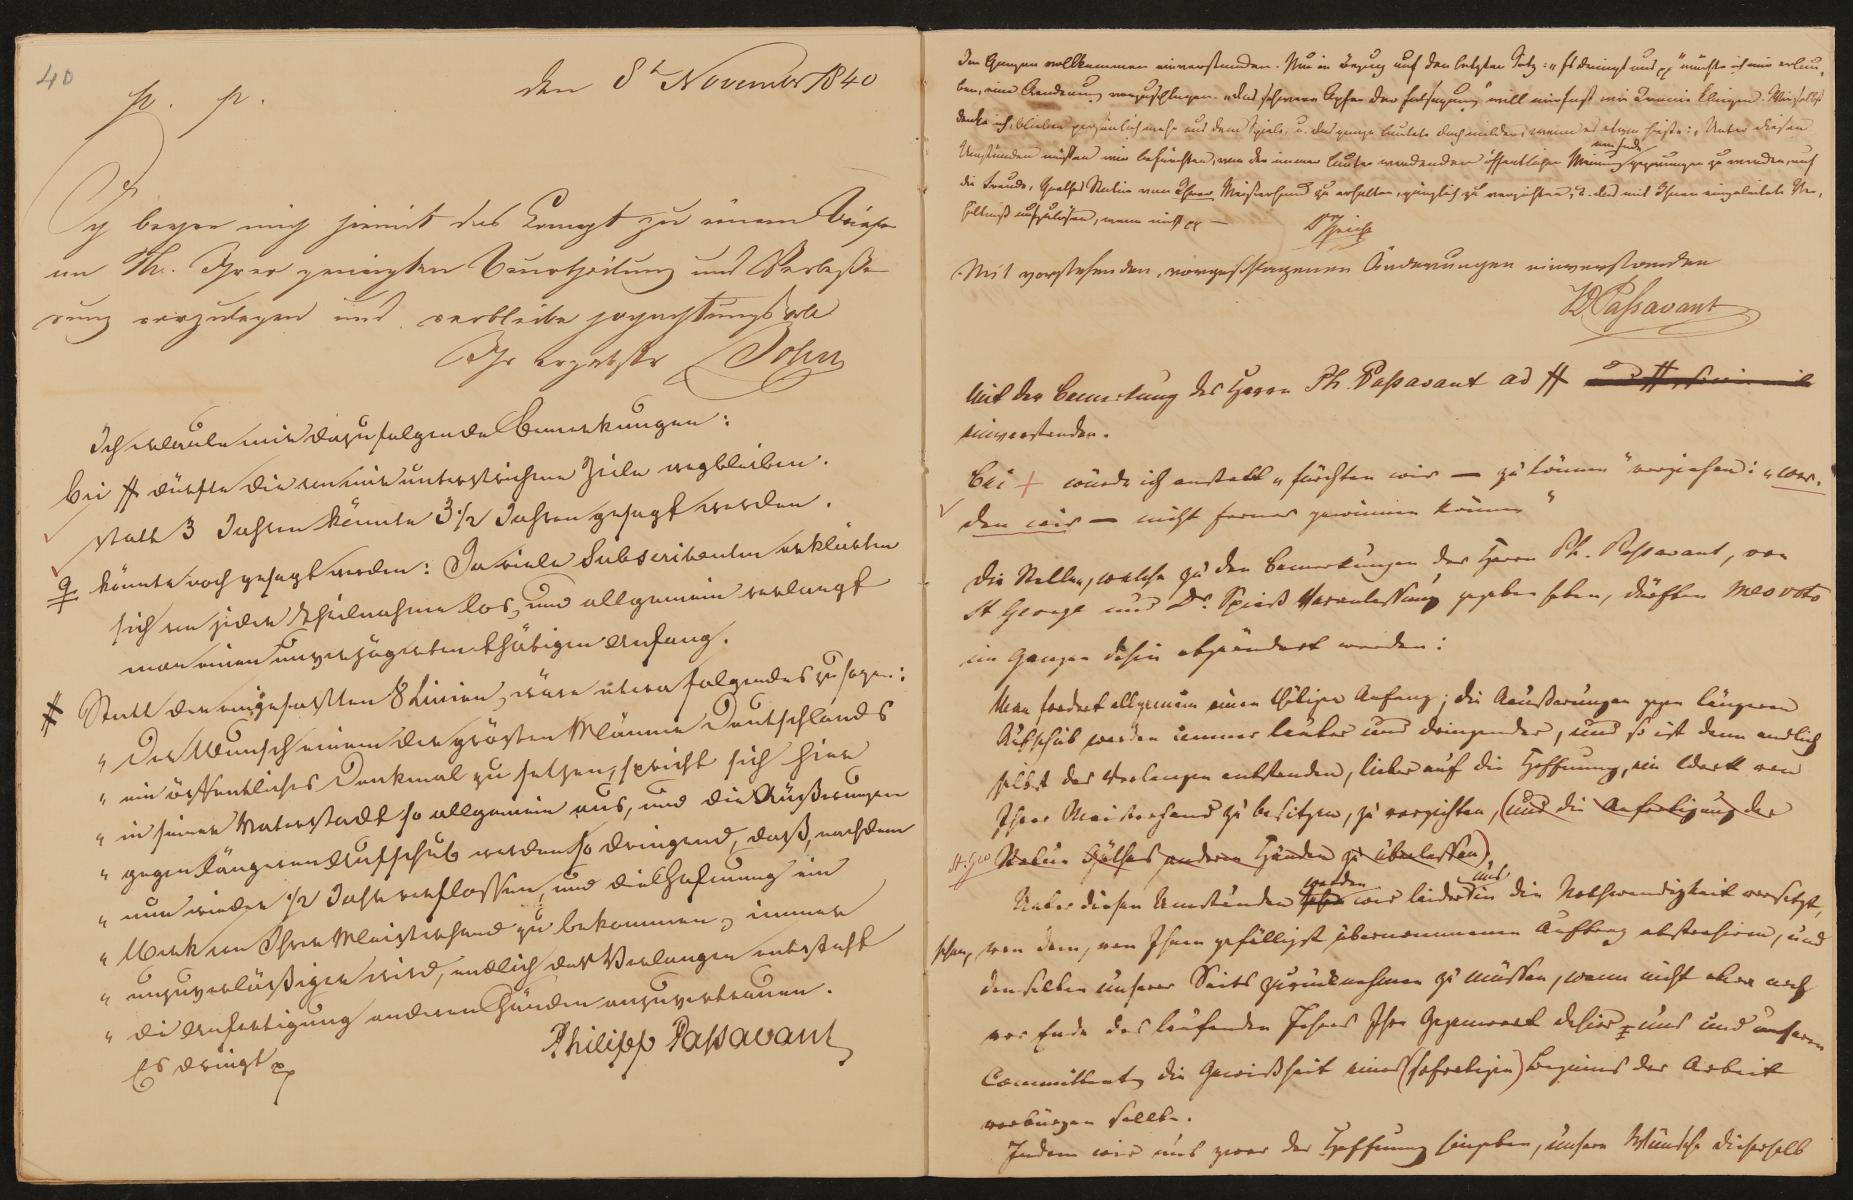 40
p. p.
den 8t November 1840
Ich beeze mich hiermit das Concept zu einem Briefe
an Th. Ihrer geneigten Beurtheilung und Verbesse
rung vorzulegen und verbleibe hochachtungsvoll
Ihr ergebenster John
Ich erlaube mir dazu folgende Bemerkungen:
bei # dürfte die von mir unterstrichene Zeile wegbleiben.
statt 3 Jahren könnte 3 1/2 Jahren gesagt werden.
könnte noch gesagt werden: Ja viele Subscribenten erklärten
sich von jeder Theilnahme los, und allgemein verlangt
man einen unverzögerten thätigen Anfang.
# Statt der eingefassten 8 Linien, wäre etwa folgendes zu sagen:
" Der Wunsch einem der grösten Männer Deutschlands
" ein öffentliches Denkmal zu setzen, spricht sich hier
" in seiner Vaterstadt so allgemein aus, und die Äußerungen
" gegen längeren Aufschub werden so dringend, daß, nachdem
" nun wieder 1/2 Jahr verflossen, und die Hoffnung ein
" Werk von Ihrer Meisterhand zu bekommen, immer
" unzuverläßiger wird, endlich das Verlangen entsteht
" die Anfertigung anderen Händen anzuvertrauen.
Es dringt pp
Philipp Passavant
Im Ganzen vollkommen einverstanden. Nur in Bezug auf den letzten Satz: "Es dringt uns pp" möchte ich mir erlau,
ben, eine Aenderung vorzuschlagen. "das schwere Opfer der Entsagung" will mir fast wie Ironie klingen. Wir selbst
denke ich, blieben persönlich mehr aus dem Spiele, u. das ganze lautete doch milder, wenn es etwa hieße: "Unter diesen
Umständen müssen wir befürchten, von der immer lauter werdenden öffentlichen Meinung gezwungen zu werden, auf
die Freude, Goethes Statue von Ihrer Meisterhand zu erhalten, gänzlich zu verzichten, u. das mit Ihnen eingeleitete Ver,
hältniß aufzulösen, wenn nicht pp —
Dr Spieß
Mit vorstehenden, vorgeschlagenen Änderungen einverstanden
JD Passavant
Mit der Bemerkung des Herrn Ph. Passavant ad #
einverstanden.
Bei + würde ich anstatt "fürchten wir — zu können" vorziehen: "wer,
den wir — nicht ferner gewinnen können"
Die Stellen, welche zu den Bemerkungen der Herrn Ph. Passavant, von
St George und Dr Spieß Veranlassung gegeben haben, dürften meo voto
im Ganzen dahin abgeändert werden:
Man fordert allgemein einen thätigen Anfang; die Aeußerungen gegen längeren
Aufschub werden immer lauter und dringender, und so ist denn endlich
selbst das Verlangen entstanden, lieber auf die Hoffnung, ein Werk von
Ihrer Meisterhand zu besitzen, zu verzichten, (und die Anfertigung der
St. Geo Statue Göthes anderen Händen zu überlassen)
Unter diesen Umständen werden wir leider uns in die Nothwendigkeit versetzt
sehen, von dem, von Ihnen gefälligst übernommenen Auftrag abstrahiren, und
denselben unserer Seits zurücknehmen zu müssen, wenn nicht etwa noch
vor Ende des laufenden Jahres Ihre Gegenwart dahier uns und unseren
Committenten die Gewißheit eines (sofortigen) Beginns der Arbeit
verbürgen sollte.
Indem wir uns zwar der Hoffnung hingeben, unsere Wünsche dieserhalb